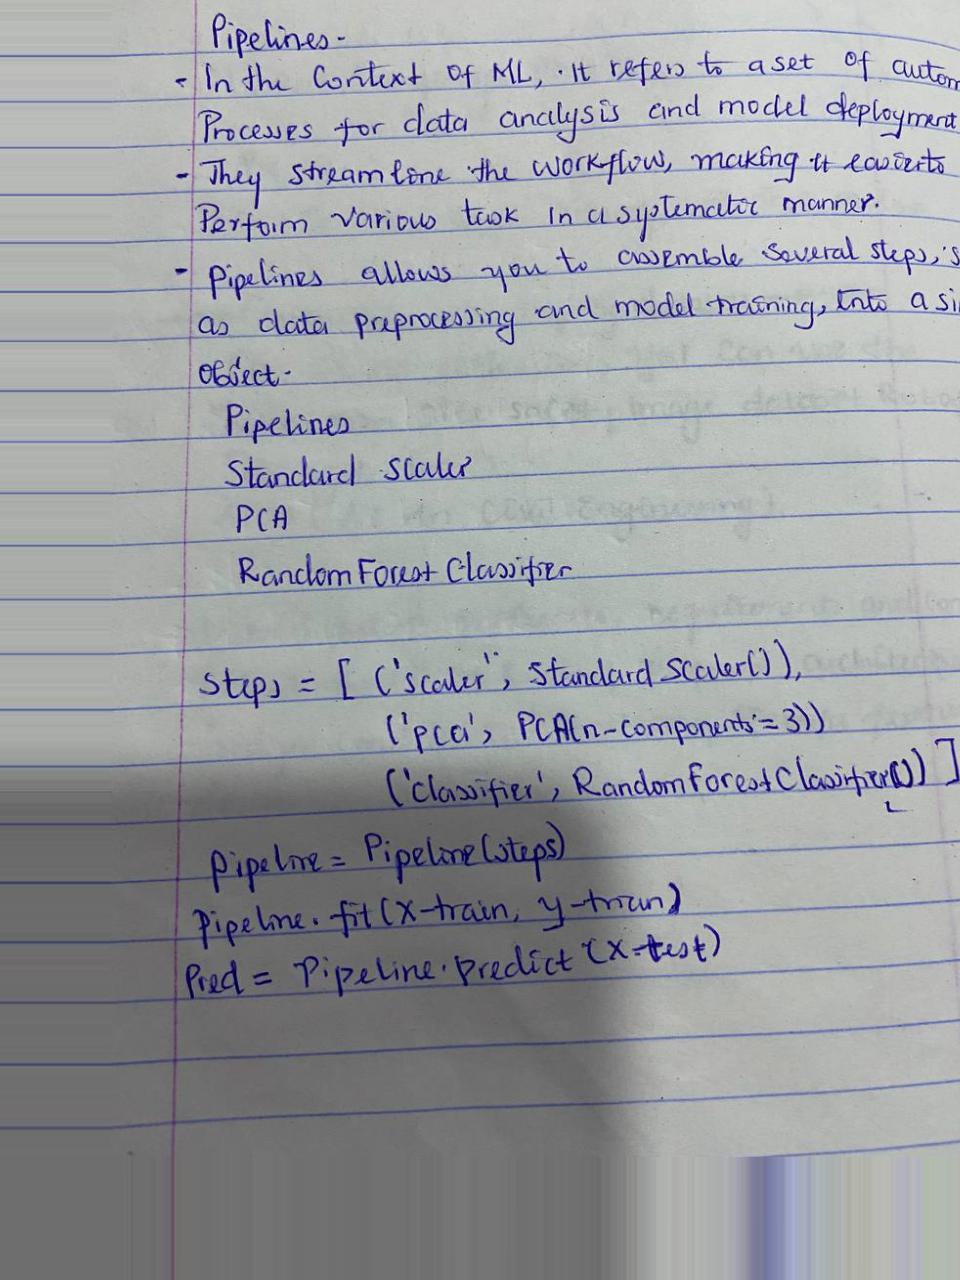 Pipelines -
- In the Context of ML, It refers to a set of autom
Processes for data analysis and model deployment
- They streamline the workflow, making it easier to
Perform various task in a systematic manner.
- Pipelines allows you to assemble several steps, s
as data preprocessing and model training, Into a si
Object.
Pipelines
Standard scaler
PCA
RandomForest Classifier
Steps = [ ('scaler", Standard Scaler()),
('pca', PCA(n-components = 3))
('Classifier', RandomForestClassifier()) ]
Pipeline = Pipeline(steps)
Pipeline. fit (X-train, y-train)
Pred = Pipeline.predict (X-test)